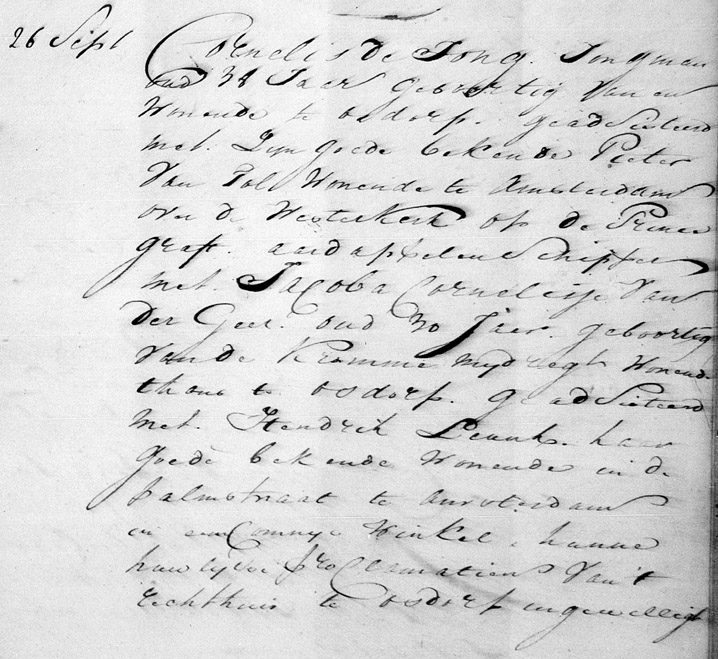 26 Sept Cornelis de Jong. Jongman
oud 34 Jaer geboortig Van en
Wonende te osdorp. geadsisteerd
met. Zyn goede bekende Pieter
Van Tol Wonende te Amsterdam
over de Westerkerk op de Prince
graft. aardappelen Schipper
met. Jacoba Cornelisse Van
der Geer. oud 30 Jaer. geboortig
Van de Kromme mydregt Wonend
thans te osdorp. geadsisteerd
met. Hendrik haar
goede bekende Wonende in de
palmstraat te Amsterdam
in een Comnye Winkel. hunne
huwlyxe proclamatien Van't
rechthuis te osdorp ingewilligt